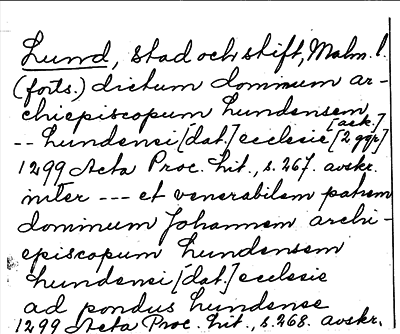 Lund, stad och stift, Malm. l.
(forts.) dictum dominum ar-
chiepiscopum Lundensem
[ack.]
-- Lundensi [dat.] ecclesie [2 ggr]
1299 Acta Proc. Lit., s. 267. avskr.
inter --- et venerabilem patrem
dominum Johannem archi-
episcopum Lundensem
Lundensi [dat.] ecclesie
ad pondus Lundense
1299 Acta Proc. Lit., s. 268. avskr.